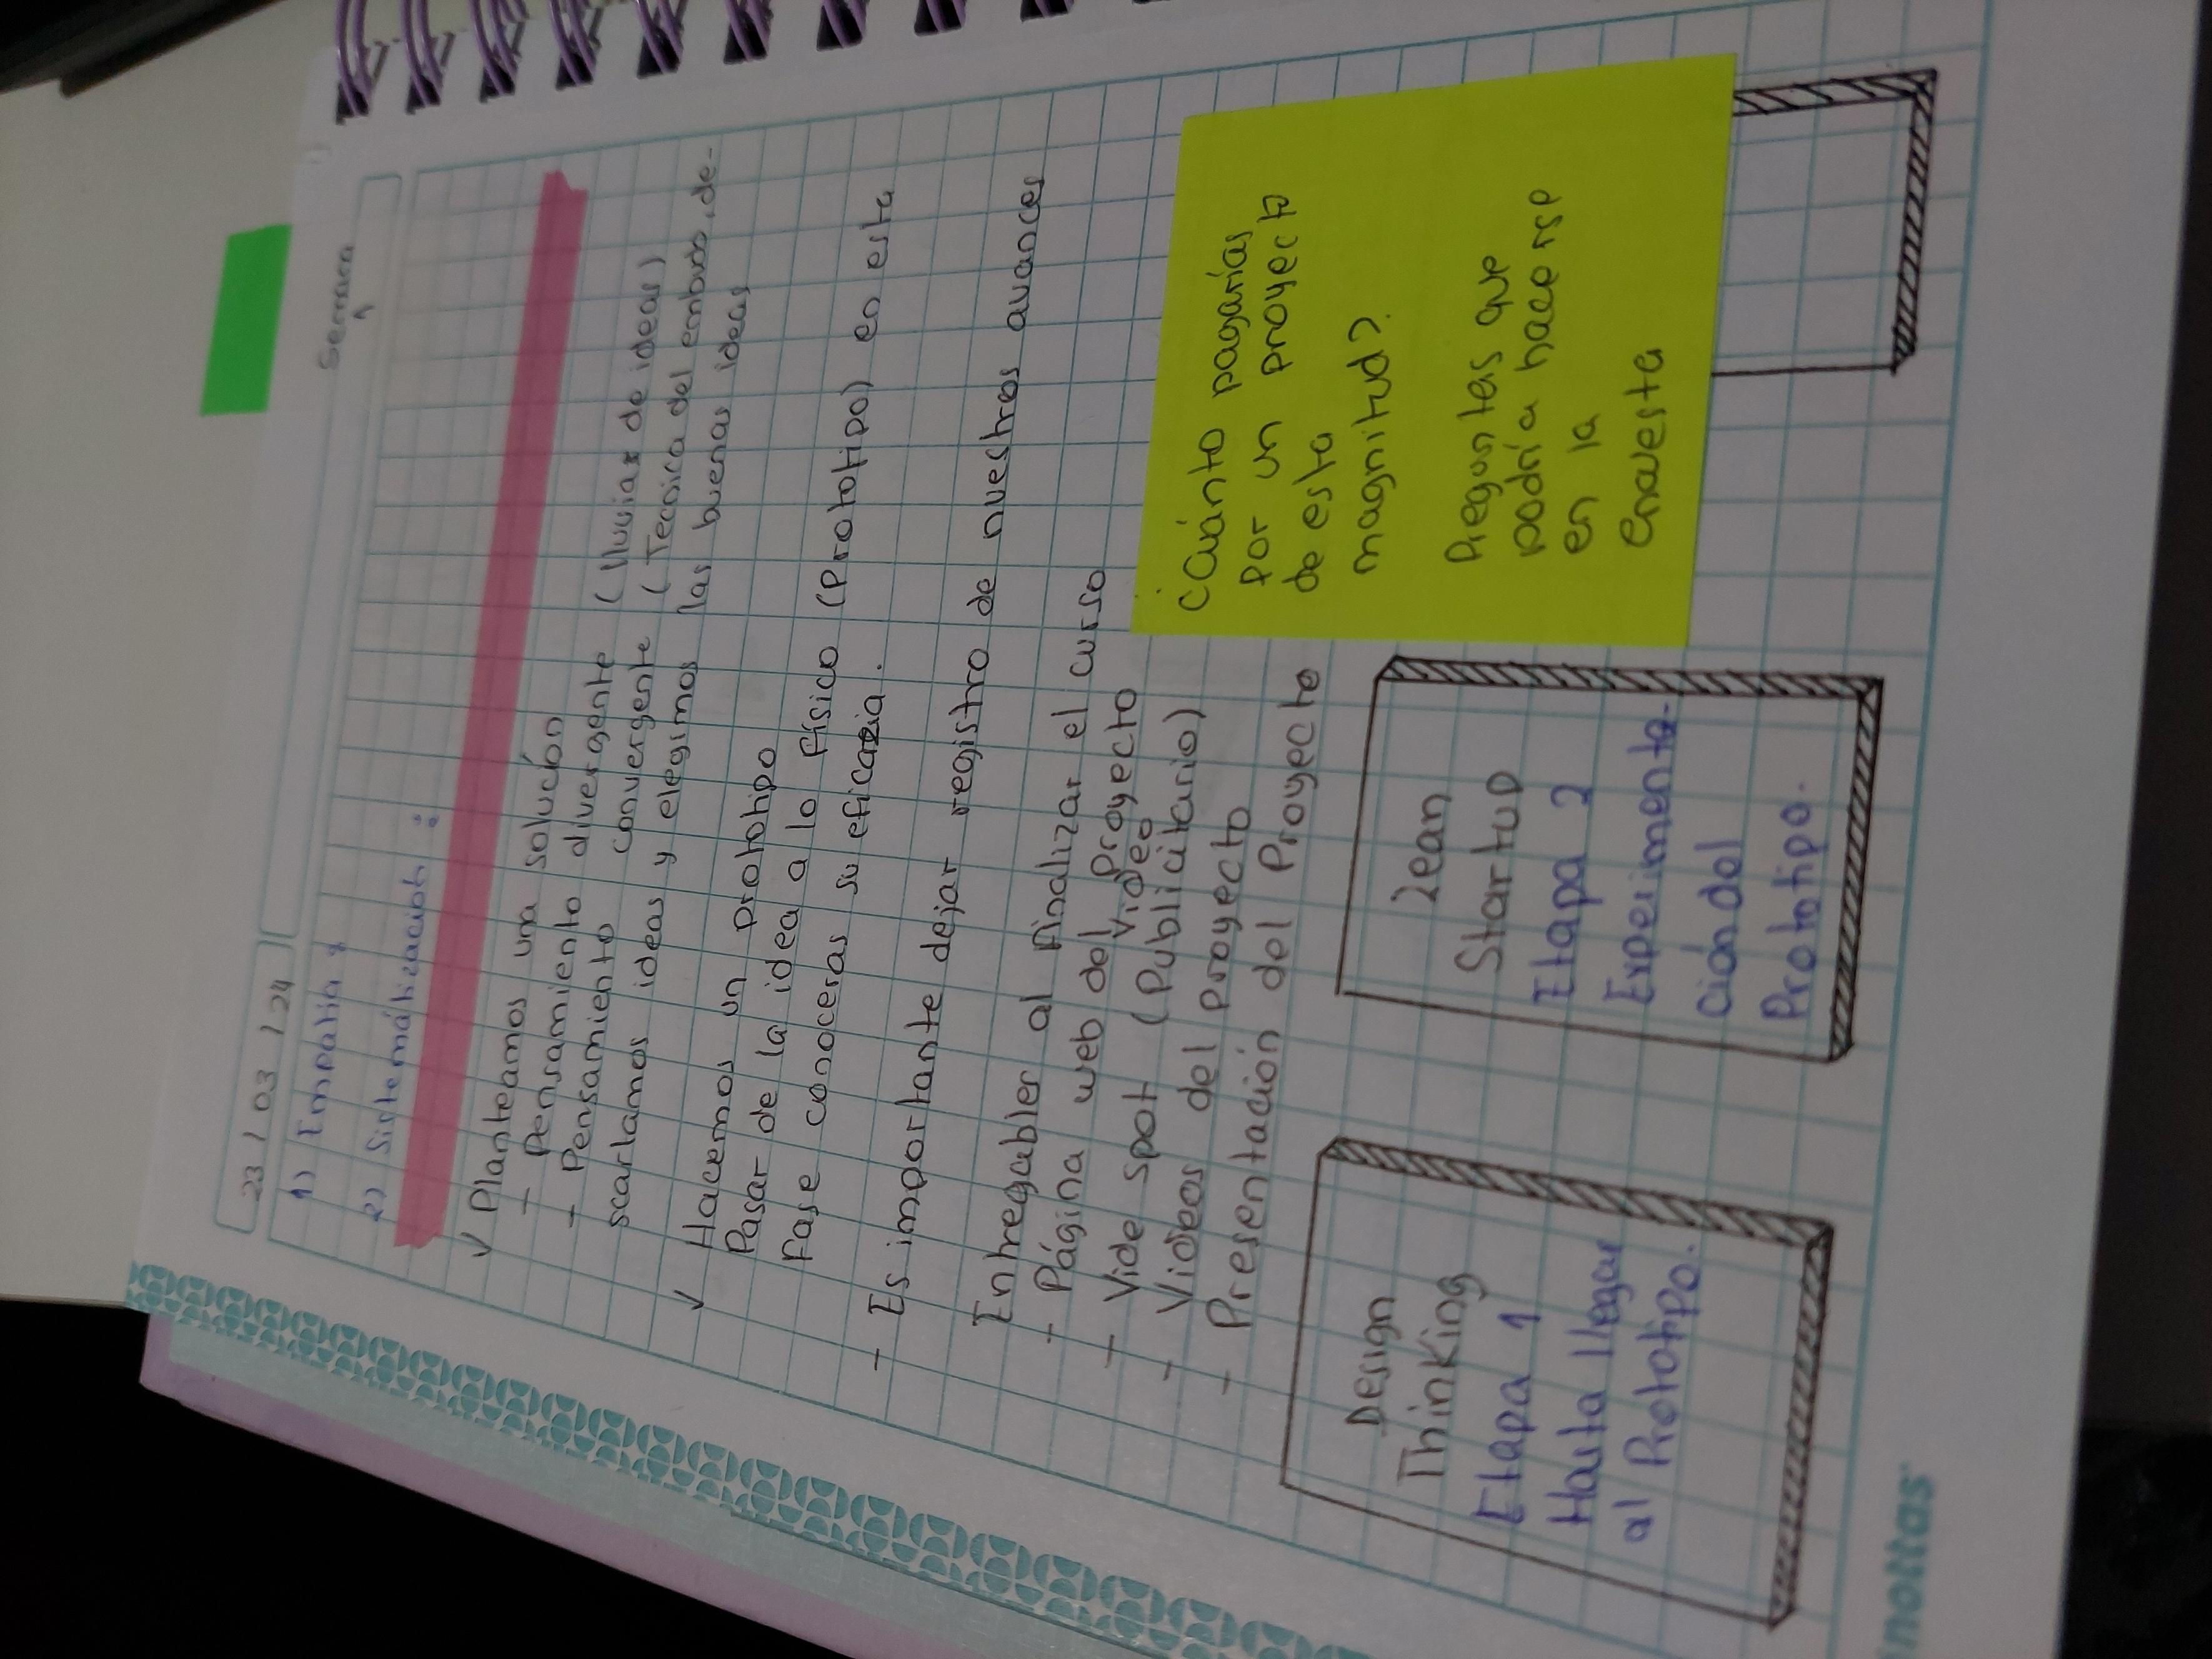 23 / 03 / 24
Semana
1
1) Empatia :
2) Sistemátización :
✓ Planteamos una solución
- Pensamiento divergente (lluvias de ideas)
- Pensamiento convergente (Tecnica del embudo, de-
scartamos ideas y elegimos las buenas ideas
✓ Hacemos un prototipo
Pasar de la idea a lo físico (Prototipo) en esta
Fase conoceras su eficacia.
- Es importante dejar registro de nuestros avances
Entregables al finalizar el curso
- Página web del proyecto
- Vide spot (Video Publicitario)
- Videos del proyecto
- Presentación del Proyecto
Design
Thinking
Etapa 1
Hasta llegar
al Prototipo.
Lean
Startup
Etapa 2
Experimenta-
ción del
Prototipo.
¿Cuánto pagarías
por un proyecto
de esta
magnitud?
Preguntas que
podría hacerse
en la
encuesta
inottas